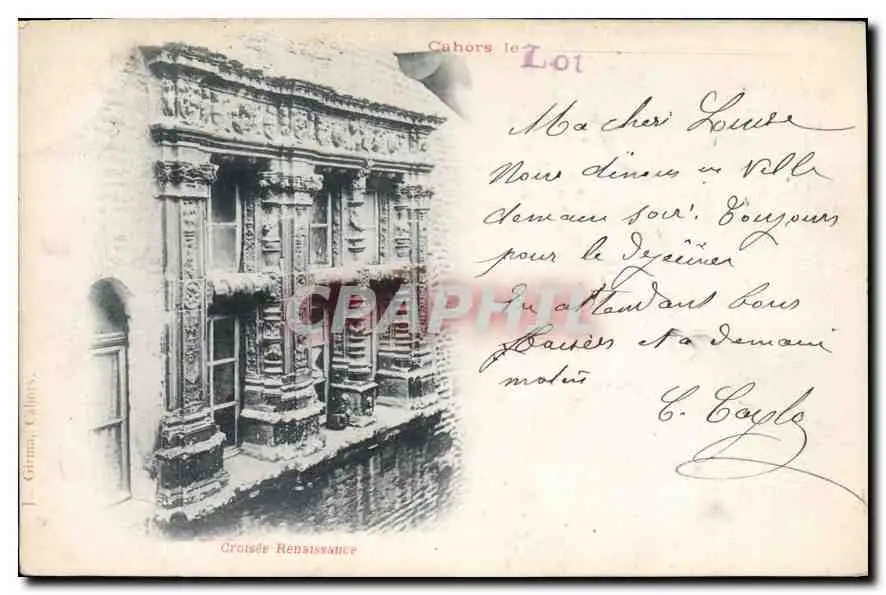 Cahors le Lot
Ma cheri Louise
Nous dinons en Ville
demain soir. Toujours
pour le Dejeüner
En attendant bons
Baisers et a demain
matin
C. Caylo
CARPI
CPA
J. Girma, Cahors.
Croisée Renaissance